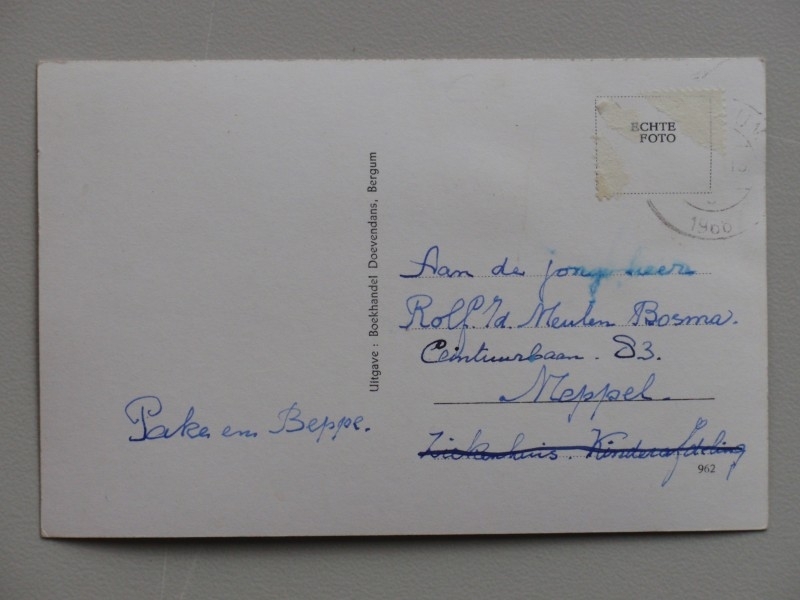 ECHTE
FOTO
1966
Uitgave : Boekhandel Doevendans, Bergum
Aan de jonge heer
Rolf. v/d. Meulen Bosma.
Ceintuurbaan. 83.
Meppel.
Ziekenhuis. Kinderafdeling
Pake en Beppe.
962